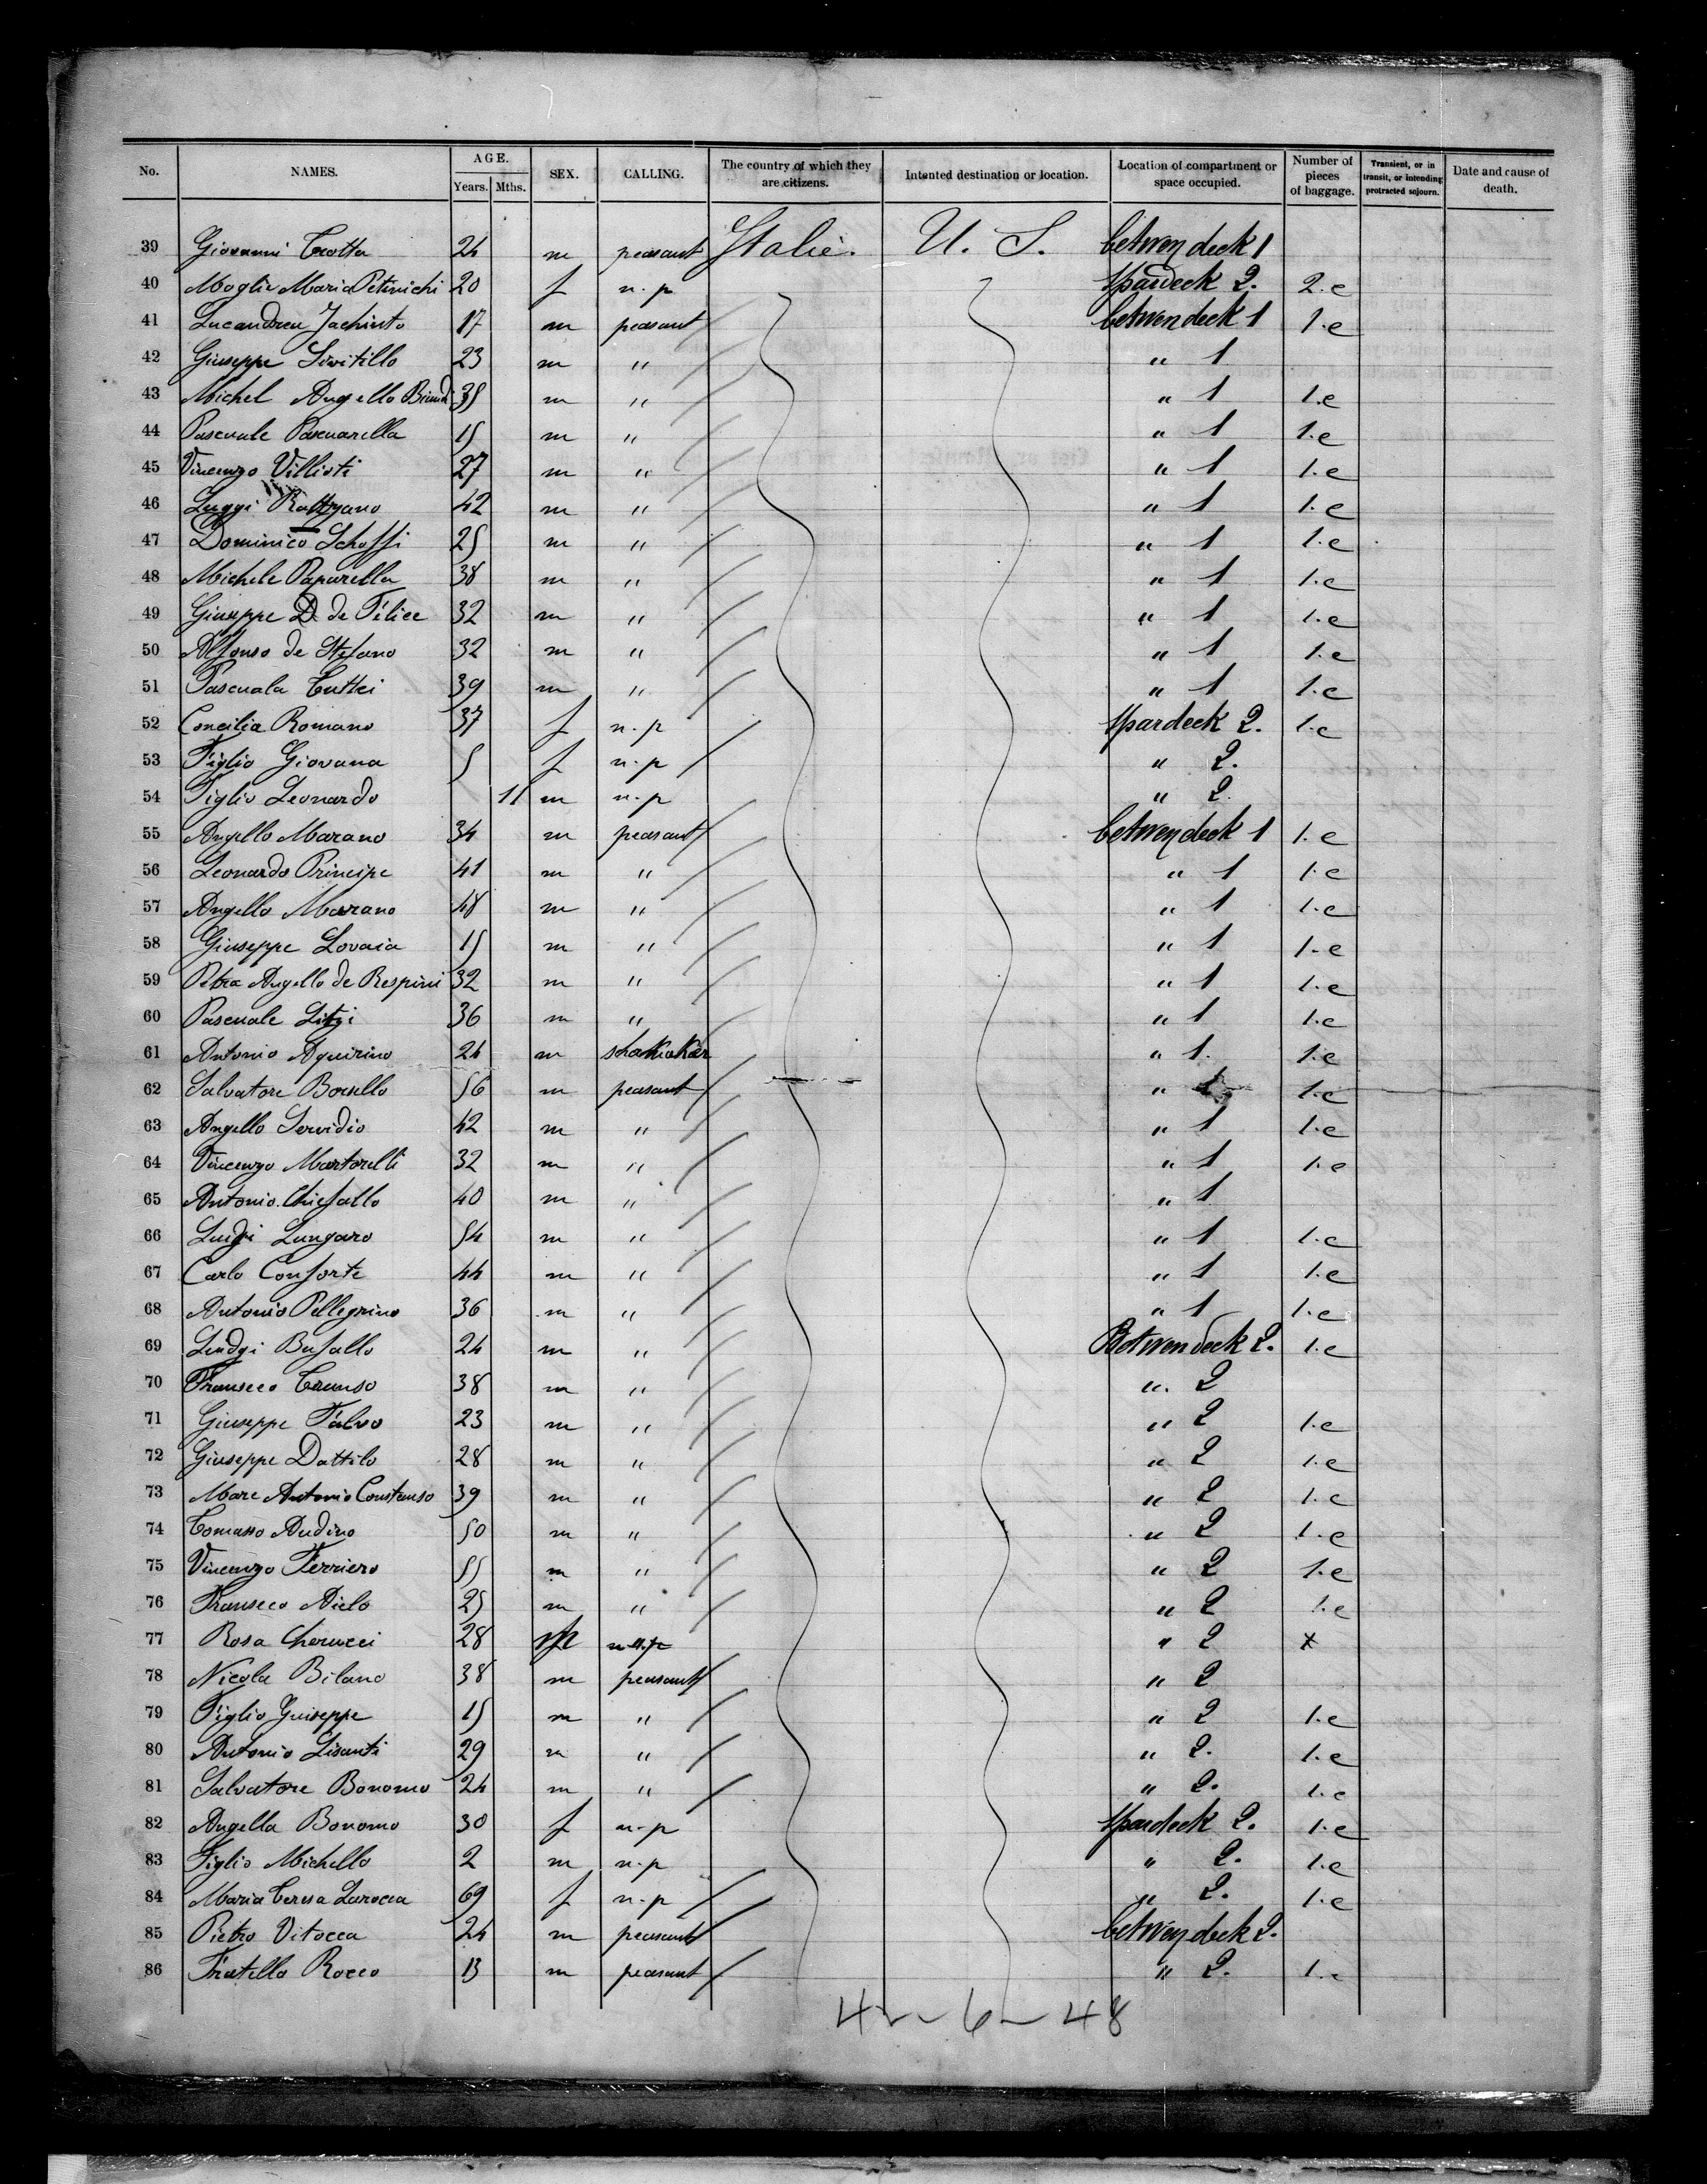 No. NAMES. AGE. Years. Mths. SEX. CALLING. The country of which they are citizens. Intented destination or location. Location of compartment or space occupied. Number of pieces of baggage. Transient, or in transit, or intending protracted sojourn. Date and cause of death.
39 Giovanni Crotta 24 m peasant Italie. U. S. betwendeck 1
40 Moglie Maria Petinichi 20 f n.p spardeck 2. 2.e
41 Lucandrea Jachinto 17 m peasant betwendeck 1 1.e
42 Giuseppe Sivitillo 23 m " " 1
43 Michel Angello 38 m " " 1 1.e
44 Pascuale Pascuarella 15 m " " 1 1.e
45 Vincenzo Villioti 27 m " " 1 1.e
46 Luggi 42 m " " 1 1.e
47 Dominico Schoffi 25 m " " 1 1.e
48 Michele Paparella 38 m " " 1 1.e
49 Giuseppe D. de Felice 32 m " " 1 1.e
50 Alfonso de Stefano 32 m " " 1 1.e
51 Pascuala Cuttei 39 m " " 1 1.e
52 Concilia Romano 37 f n.p spardeck 2. 1.e
53 Figlio Giovana 5 f n.p " 2.
54 Figlio Leonardo 11 m n.p " 2.
55 Angello Marano 34 m peasant betwendeck 1 1.e
56 Leonardo Principe 41 m " " 1 1.e
57 Angello Marano 48 m " " 1 1.e
58 Giuseppe Lovaia 15 m " " 1 1.e
59 Petra Angello de Respini 32 m " " 1 1.e
60 Pascuale Litzi 36 m " " 1 1.e
61 Antonio Aquirino 24 m " 1. 1.e
62 Salvatore Borsello 56 m peasant " 1 1.e
63 Angello Servidio 42 m " " 1 1.e
64 Vincenzo Martorelli 32 m " " 1 1.e
65 Antonio Chiefallo 40 m " " 1
66 Luigi Lungaro 54 m " " 1 1.e
67 Carlo Conforte 44 m " " 1 1.e
68 Antonio Pellegrino 36 m " " 1 1.e
69 Luidgi Bufallo 24 m " Betwendeck 2. 1.e
70 Franseco Caruso 38 m " " 2
71 Giuseppe Falvo 23 m " " 2 1.e
72 Giuseppe Dattilo 28 m " " 2 1.e
73 Marc Antonio Constanso 39 m " " 2 1.e
74 Comasso Audino 50 m " " 2 1.e
75 Vincenzo Ferriero 55 m " " 2 1.e
76 Franseco Aielo 25 m " " 2 1.e
77 Rosa Cherucci 28 f n.p " 2 x
78 Nicola Bilano 38 m peasant " 2
79 Figlio Guiseppe 15 m " " 2 1.e
80 Antonio Lisanti 29 m " " 2. 1.e
81 Salvatore Bonomo 24 m " " 2. 1.e
82 Angella Bonomo 30 f n.p spardeck 2. 1.e
83 Figlio Michello 2 m n.p " 2. 1.e
84 Maria Ceresa Larocca 69 f n.p " 2. 1.e
85 Pietro Vitocca 24 m peasant betwendeck 2.
86 Fratello Rocco 13 m peasant " 2. 1.e
4 - 6 - 48